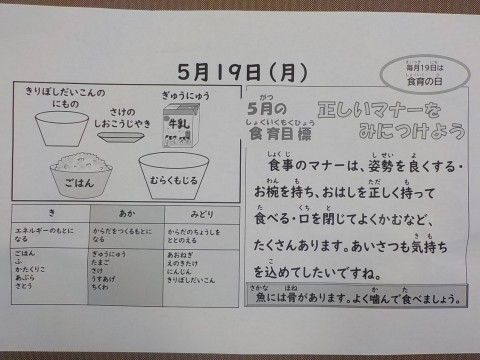 5月19日(月)
毎月19日は
食育の日
きりぼしだいこんの
にもの
さけの
しおこうじやき
ぎゅうにゅう
牛乳
ごはん
むらくもじる
き
あか
みどり
エネルギーのもとに
なる
からだをつくるもとに
なる
からだのちょうしを
ととのえる
ごはん
ふ
かたくりこ
あぶら
さとう
ぎゅうにゅう
たまご
さけ
うすあげ
ちくわ
あおねぎ
えのきたけ
にんじん
きりぼしだいこん
5月の
食育目標
正しいマナーを
みにつけよう
食事のマナーは、姿勢を良くする・
お椀を持ち、おはしを正しく持って
食べる・口を閉じてよくかむなど、
たくさんあります。あいさつも気持ち
を込めてしたいですね。
魚には骨があります。よく噛んで食べましょう。